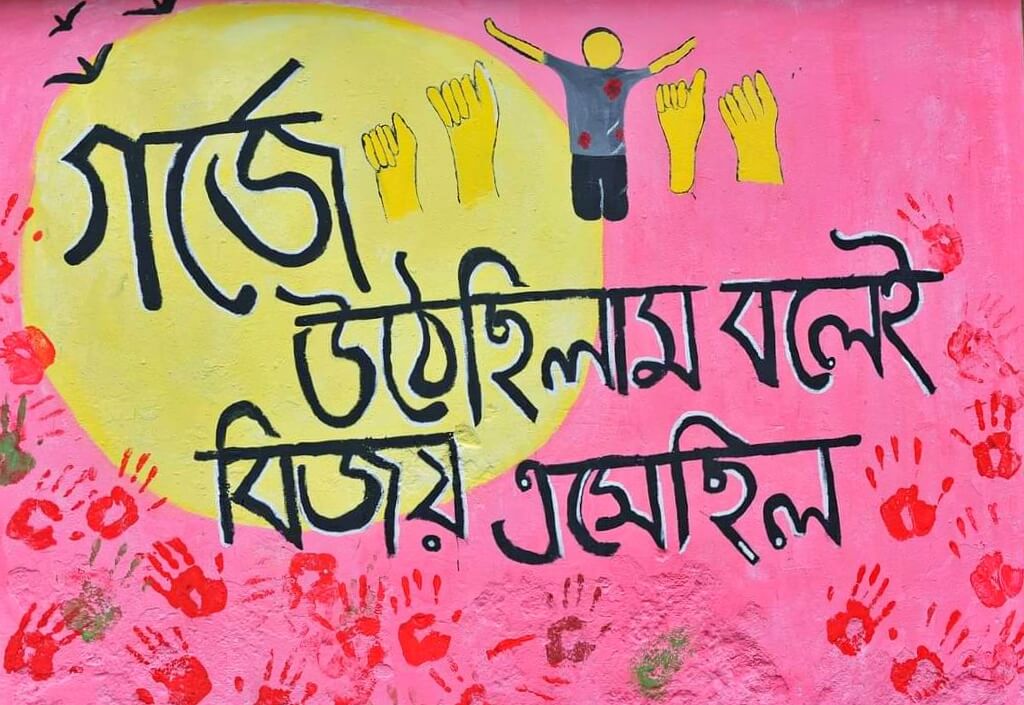 গর্জে
উঠেছিলাম বলেই
বিজয় এসেছিল